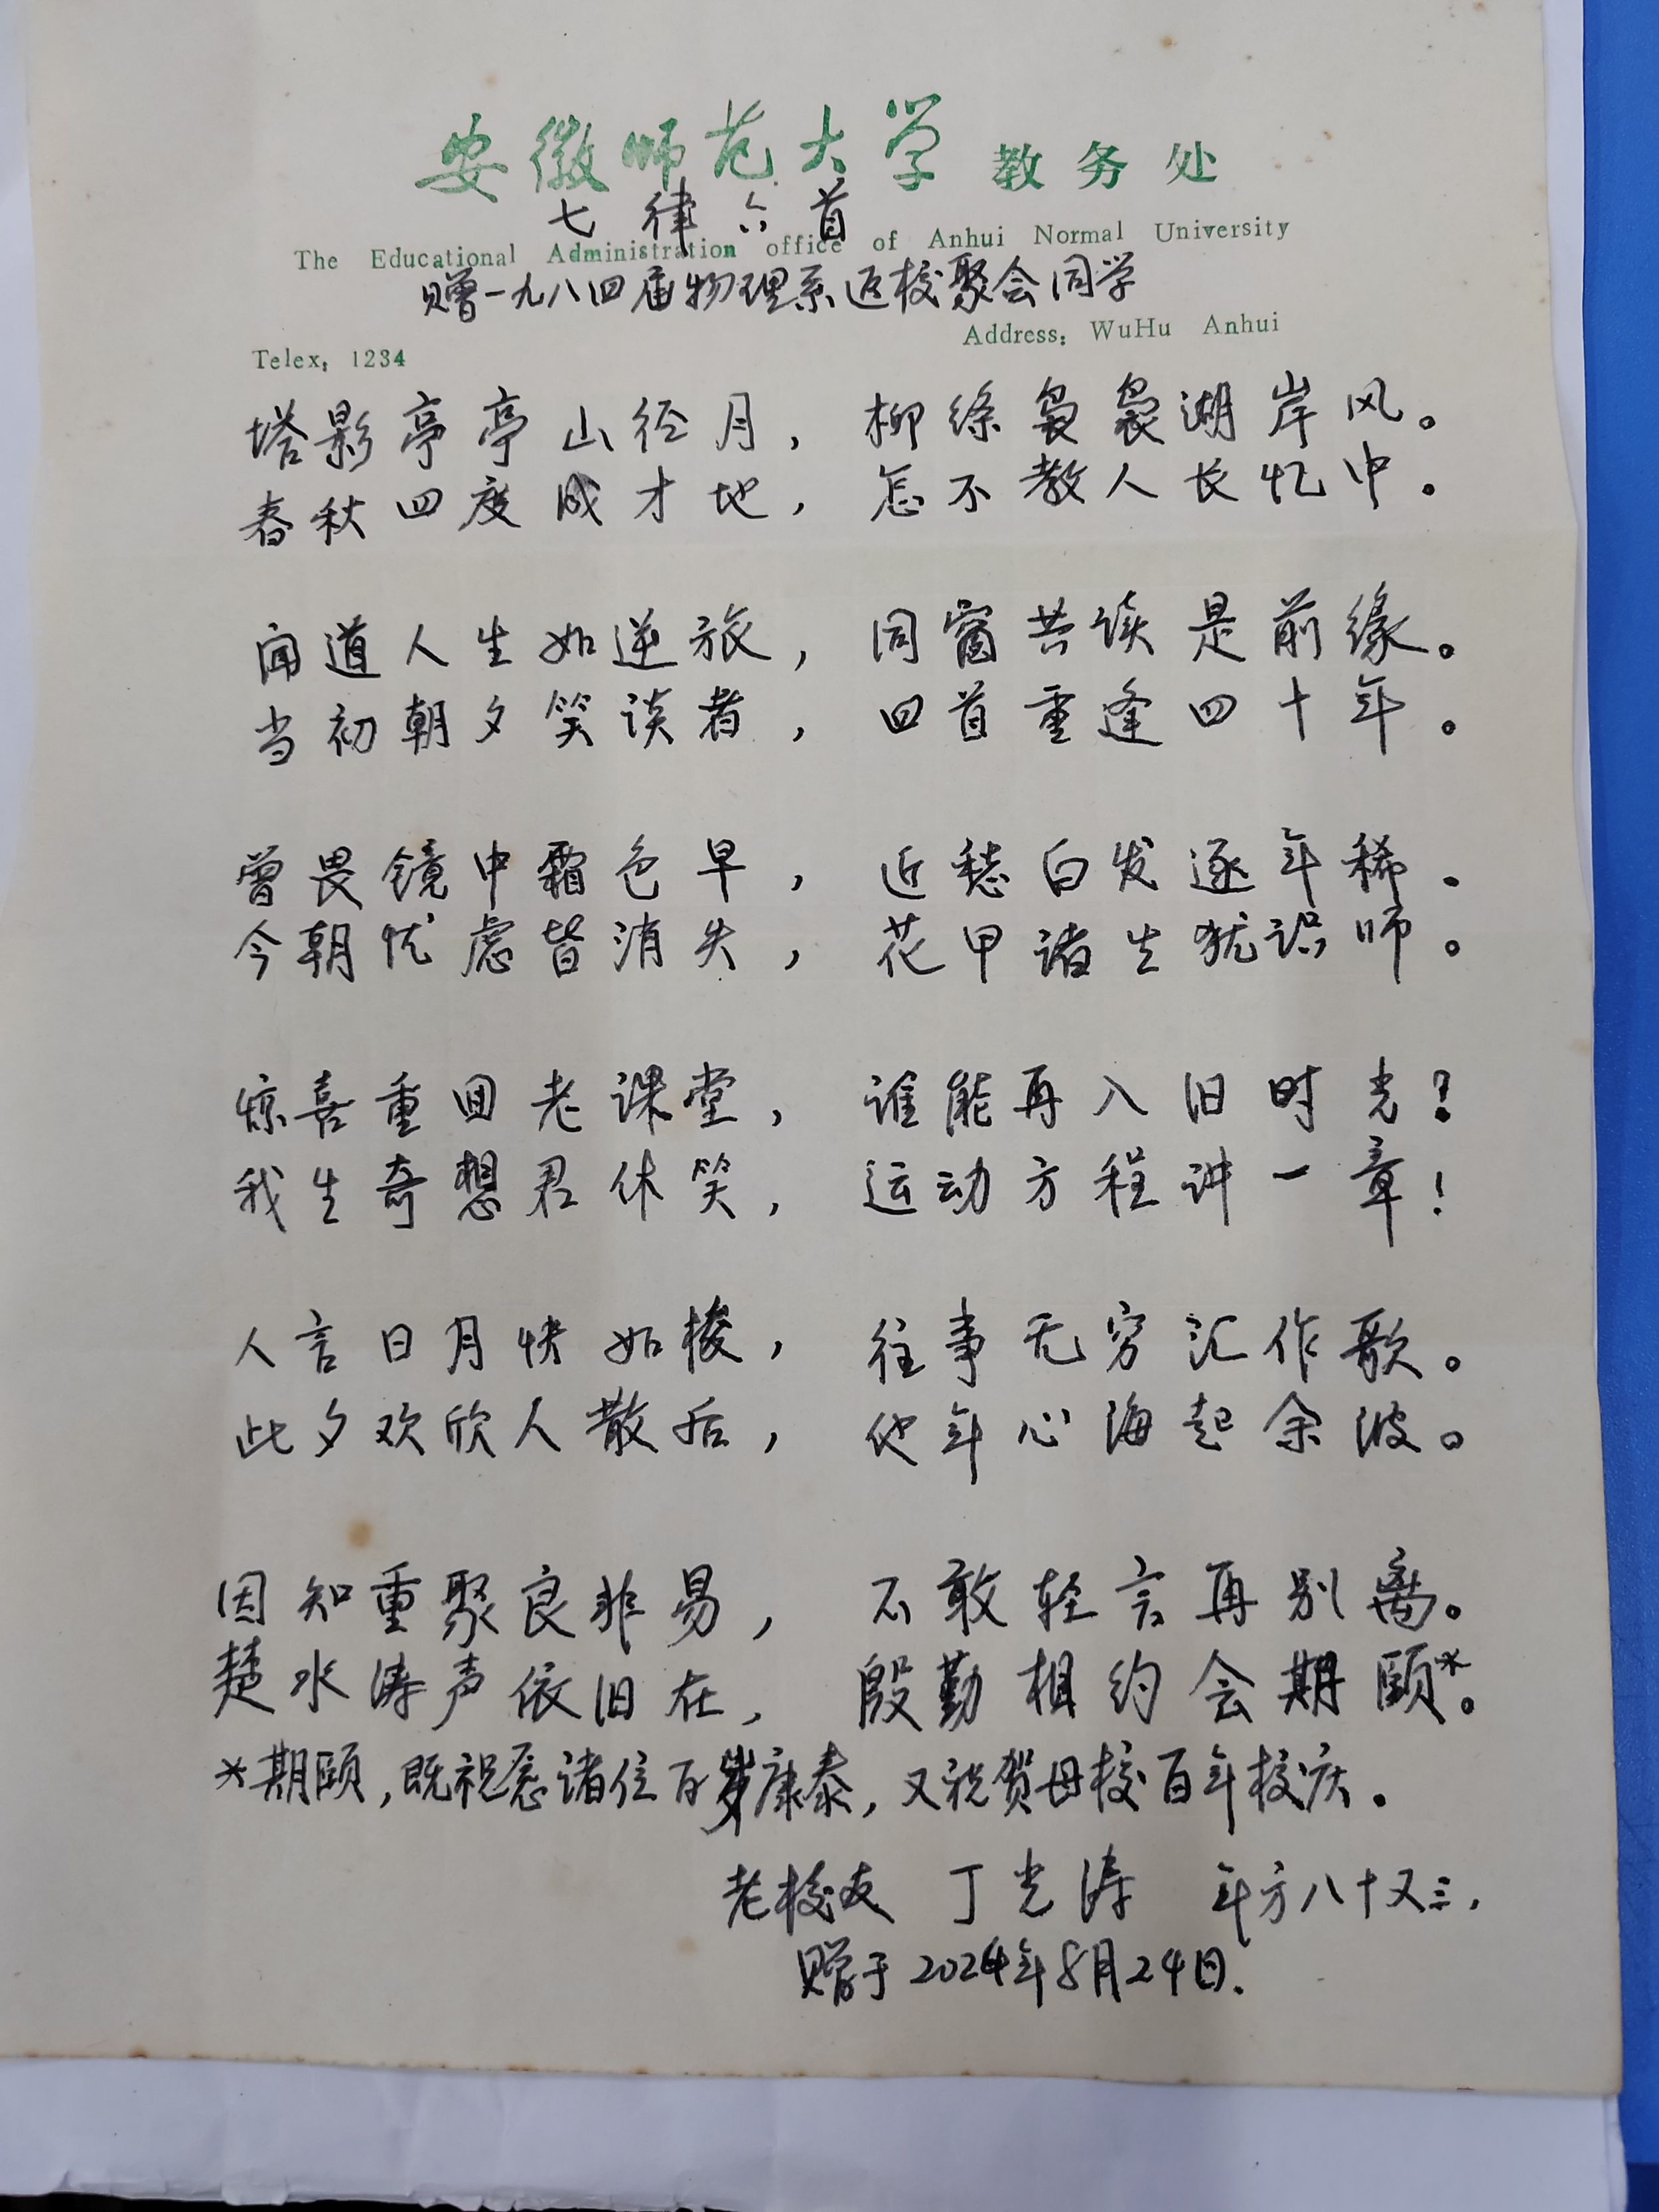 安徽师范大学 教务处
七律六首
The Educational Administration office of Anhui Normal University
赠一九八四届物理系返校聚会同学
Address: WuHu Anhui
Telex: 1234
塔影亭亭山径月，柳绦袅袅湖岸风。
春秋四度成才地，怎不教人长忆中。
闻道人生如逆旅，同窗共读是前缘。
当初朝夕笑谈者，回首重逢四十年。
曾畏镜中霜色早，近愁白发逐年稀。
今朝忧虑皆消失，花甲诸生犹识师。
惊喜重回老课堂，谁能再入旧时光？
我生奇想君休笑，运动方程讲一章！
人言日月快如梭，往事无穷汇作歌。
此夕欢欣人散后，他年心海起余波。
因知重聚良非易，不敢轻言再别离。
楚水涛声依旧在，殷勤相约会期颐*。
*期颐，既祝愿诸位百岁康泰，又祝贺母校百年校庆。
老校友 丁光涛 年方八十又三，
赠于2024年8月24日.